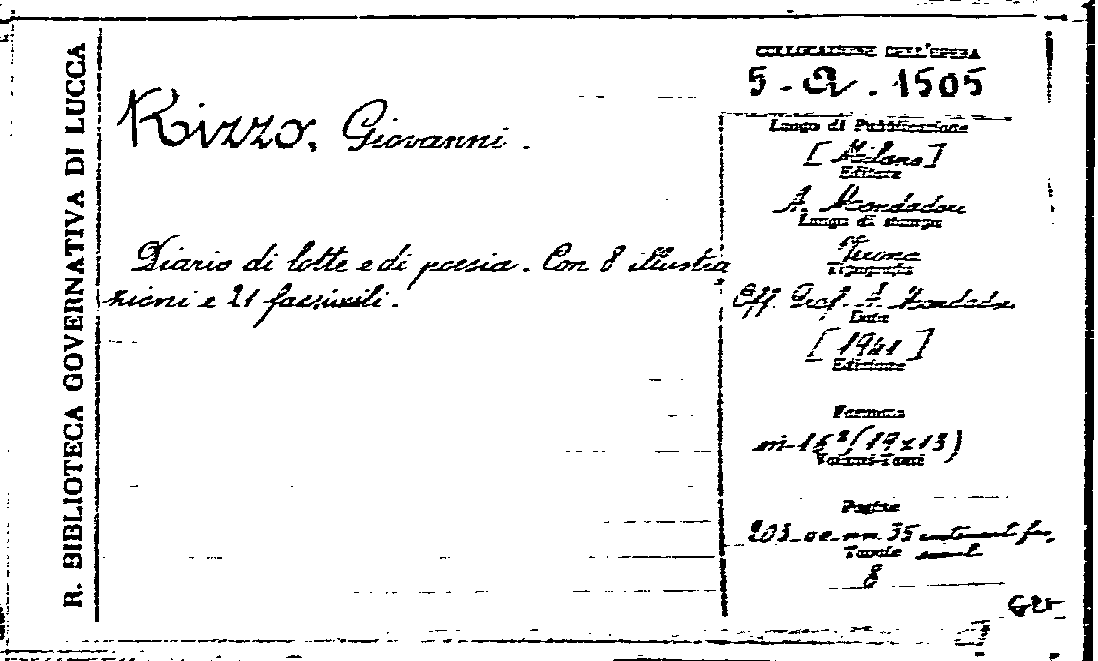 R. BIBLIOTECA GOVERNATIVA DI LUCCA
Rizzo, Giovanni.
Diario di lotte e di poesia. Con 8 illustra
zioni e 21 facsimili.
COLLOCAZIONE DELL'OPERA
5 - Q - 1505
Luogo di Pubblicazione
[Milano]
Editore
A. Mondadori
Luogo di stampa
Verona
Tipografia
Off. Graf. A. Mondadori
Data
[1941]
Edizione
Formato
in-16° (19x13)
Volumi-Tomi
Pagine
203 35
Tavole
8